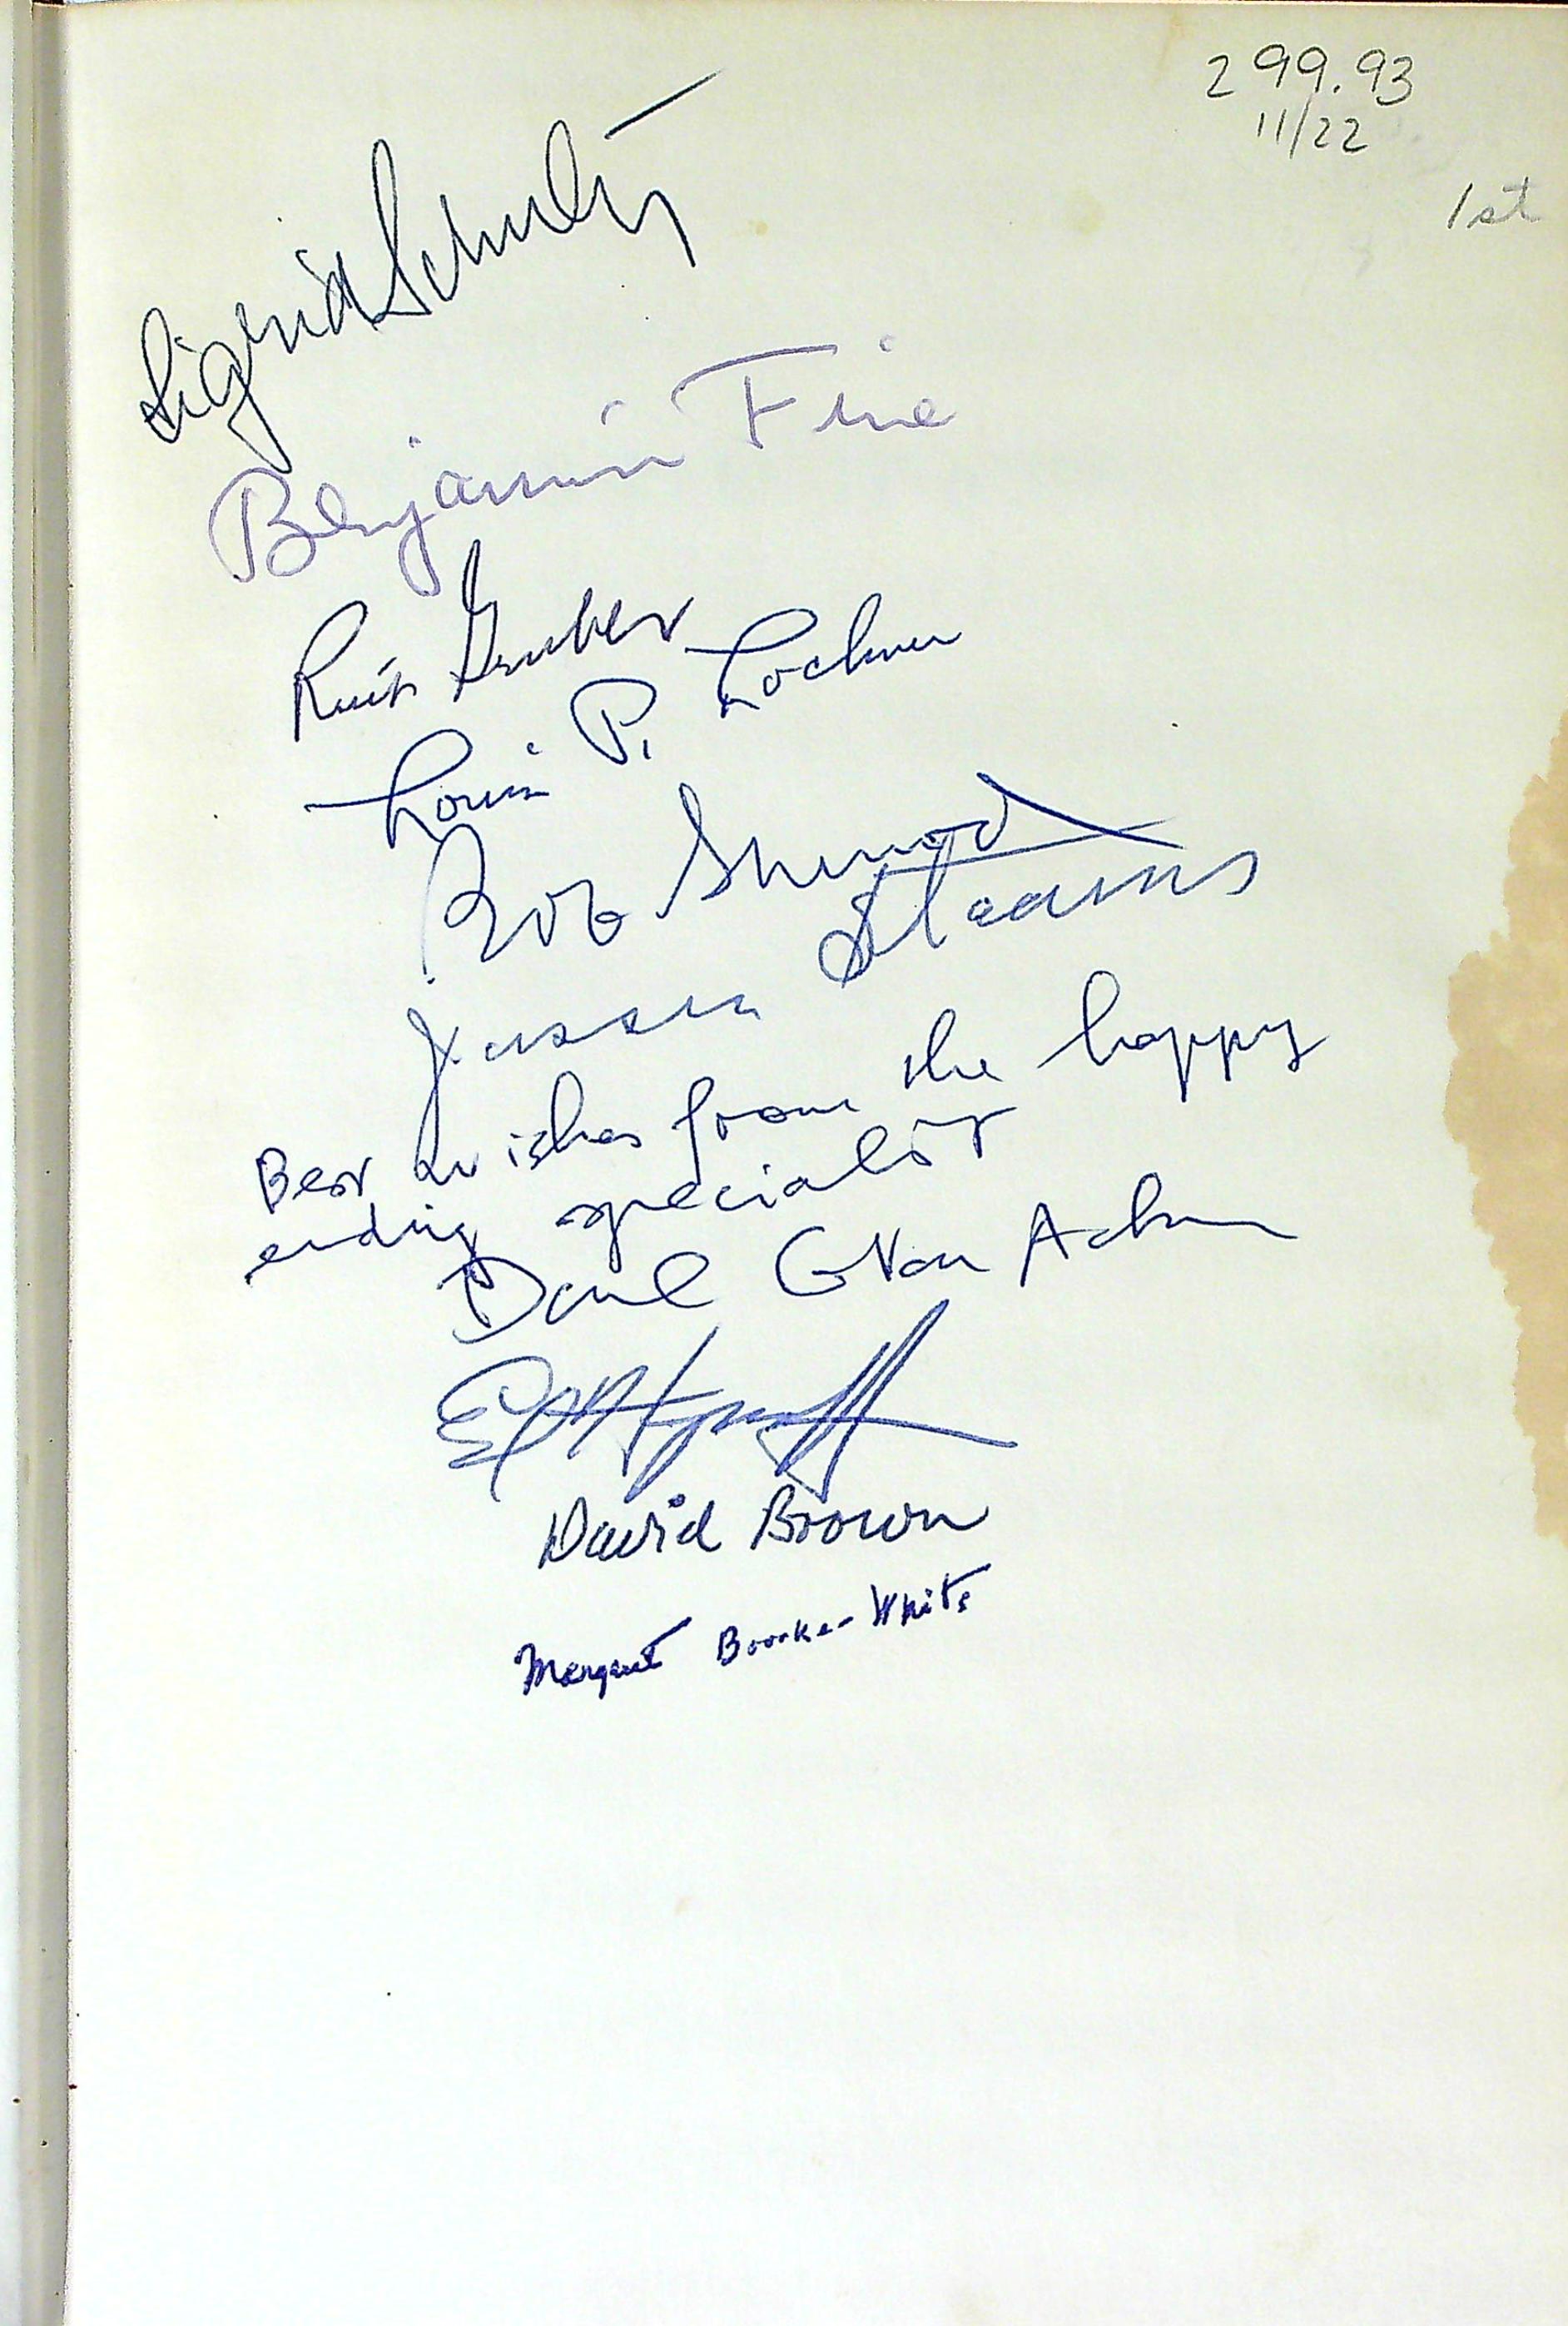 299.93
11/22
1st
Sigrid Schultz
Benjamin Fine
Ruth Gruber
Louis P. Lochner
Bob Sherrod
Jess Stearns
Best wishes from the happy
ending specialist
David Brown
Margaret Bourke-White